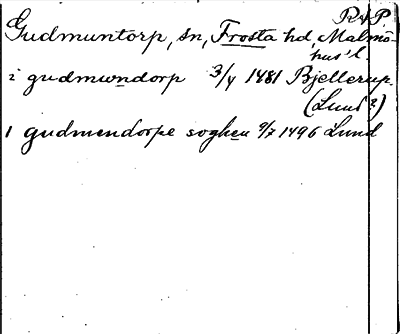 R & P.
Gudmuntorp, sn, Frosta hd, Malmö-
hus' l.
i gudmwndorp 3/4 1481 Bjellerup.
(Lund?)
I gudmendorpe soghen 9/7 1496 Lund